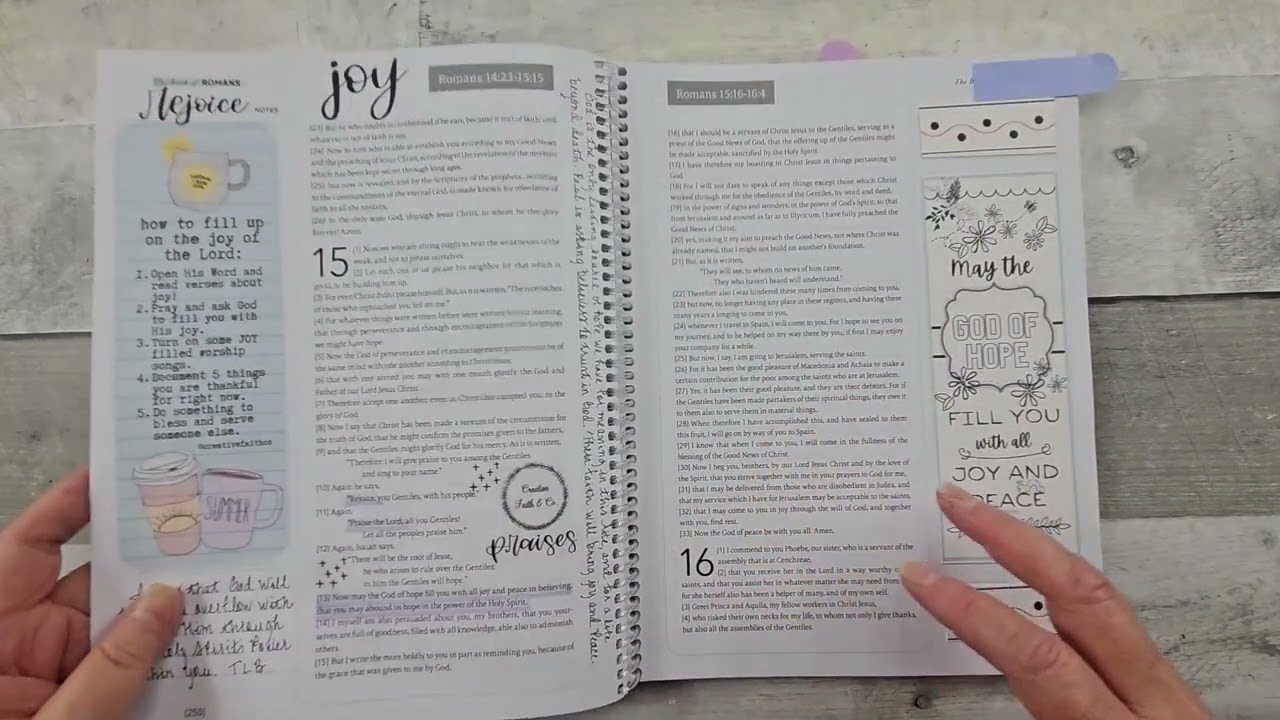 The Book of ROMANS
Rejoice NOTES
how to fill up
on the joy of
the Lord:
1. Open His Word and
read verses about
joy!
2. Pray and ask God
to fill you with
His joy.
3. Turn on some JOY
filled worship
songs.
4. Document 5 things
you are thankful
for right now.
5. Do something to
bless and serve
someone else.
@creativefaithco
SUMMER
that God will
overflow with
Him through
Holy Spirits Power
within you. TLB
[250]
joy
Romans 14:23-15:15
[23] But he who doubts is condemned if he eats, because it isn't of faith; and
whatever is not of faith is sin.
[24] Now to him who is able to establish you according to my Good News
and the preaching of Jesus Christ, according to the revelation of the mystery
which has been kept secret through long ages,
[25] but now is revealed, and by the Scriptures of the prophets, according
to the commandment of the eternal God, is made known for obedience of
faith to all the nations;
[26] to the only wise God, through Jesus Christ, to whom be the glory
forever! Amen.
15 [1] Now we who are strong ought to bear the weaknesses of the
weak, and not to please ourselves.
[2] Let each one of us please his neighbor for that which is
good, to be building him up.
[3] For even Christ didn't please himself. But, as it is written, "The reproaches
of those who reproached you fell on me."
[4] For whatever things were written before were written for our learning,
that through perseverance and through encouragement of the Scriptures
we might have hope.
[5] Now the God of perseverance and of encouragement grant you to be of
the same mind with one another according to Christ Jesus,
[6] that with one accord you may with one mouth glorify the God and
Father of our Lord Jesus Christ.
[7] Therefore accept one another, even as Christ also accepted you, to the
glory of God.
[8] Now I say that Christ has been made a servant of the circumcision for
the truth of God, that he might confirm the promises given to the fathers,
[9] and that the Gentiles might glorify God for his mercy. As it is written,
"Therefore I will give praise to you among the Gentiles
and sing to your name."
[10] Again he says,
"Rejoice, you Gentiles, with his people."
[11] Again,
"Praise the Lord, all you Gentiles!
Let all the peoples praise him."
[12] Again, Isaiah says,
"There will be the root of Jesse,
he who arises to rule over the Gentiles;
in him the Gentiles will hope."
[13] Now may the God of hope fill you with all joy and peace in believing,
that you may abound in hope in the power of the Holy Spirit.
[14] I myself am also persuaded about you, my brothers, that you your-
selves are full of goodness, filled with all knowledge, able also to admonish
others.
[15] But I write the more boldly to you in part as reminding you, because of
the grace that was given to me by God.
Creative
Faith & Co.
praises
God is the only lasting source of hope. We have to memory in this life and for a hope
beyond death. Paul is asking believers to trust in God. Their faith will bring joy and peace.
Romans 15:16-16:4
The B
[16] that I should be a servant of Christ Jesus to the Gentiles, serving as a
priest of the Good News of God, that the offering up of the Gentiles might
be made acceptable, sanctified by the Holy Spirit.
[17] I have therefore my boasting in Christ Jesus in things pertaining to
God.
[18] For I will not dare to speak of any things except those which Christ
worked through me for the obedience of the Gentiles, by word and deed,
[19] in the power of signs and wonders, in the power of God's Spirit; so that
from Jerusalem and around as far as to Illyricum, I have fully preached the
Good News of Christ;
[20] yes, making it my aim to preach the Good News, not where Christ was
already named, that I might not build on another's foundation.
[21] But, as it is written,
"They will see, to whom no news of him came.
They who haven't heard will understand."
[22] Therefore also I was hindered these many times from coming to you,
[23] but now, no longer having any place in these regions, and having these
many years a longing to come to you,
[24] whenever I travel to Spain, I will come to you. For I hope to see you on
my journey, and to be helped on my way there by you, if first I may enjoy
your company for a while.
[25] But now, I say, I am going to Jerusalem, serving the saints.
[26] For it has been the good pleasure of Macedonia and Achaia to make a
certain contribution for the poor among the saints who are at Jerusalem.
[27] Yes, it has been their good pleasure, and they are their debtors. For if
the Gentiles have been made partakers of their spiritual things, they owe it
to them also to serve them in material things.
[28] When therefore I have accomplished this, and have sealed to them
this fruit, I will go on by way of you to Spain.
[29] I know that when I come to you, I will come in the fullness of the
blessing of the Good News of Christ.
[30] Now I beg you, brothers, by our Lord Jesus Christ and by the love of
the Spirit, that you strive together with me in your prayers to God for me,
[31] that I may be delivered from those who are disobedient in Judea, and
that my service which I have for Jerusalem may be acceptable to the saints,
[32] that I may come to you in joy through the will of God, and together
with you, find rest.
[33] Now the God of peace be with you all. Amen.
16 [1] I commend to you Phoebe, our sister, who is a servant of the
assembly that is at Cenchreae,
[2] that you receive her in the Lord in a way worthy of
saints, and that you assist her in whatever matter she may need from
for she herself also has been a helper of many, and of my own self.
[3] Greet Prisca and Aquila, my fellow workers in Christ Jesus,
[4] who risked their own necks for my life, to whom not only I give thanks,
but also all the assemblies of the Gentiles.
May the
GOD OF
HOPE
FILL YOU
with all
JOY AND
PEACE